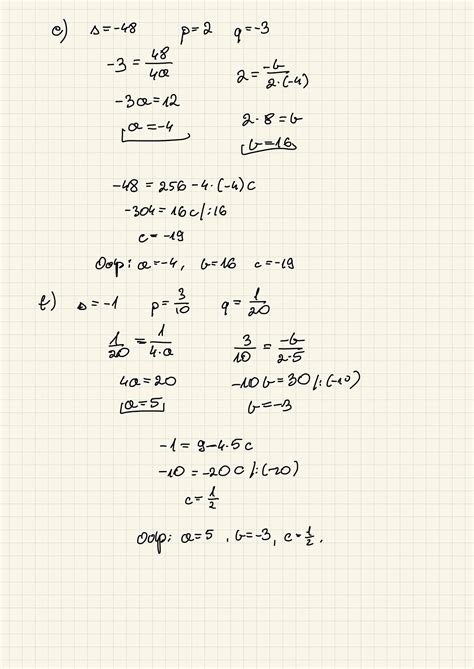 e) Δ=-48 p=2 q=-3
-3=48/4a 2=-b/2·(-4)
-3a=12 2·8=b
a=-4 b=16
-48=256-4·(-4)c
-304=16c/:16
c=-19
Odp: a=-4, b=16 c=-19
f) Δ=-1 p=3/10 q=1/20
1/20=1/4·a 3/10=-b/2·5
4a=20 -10b=30/:(-10)
a=5 b=-3
-1=9-4·5c
-10=-20c/:(-20)
c=1/2
Odp: a=5, b=-3, c=1/2.